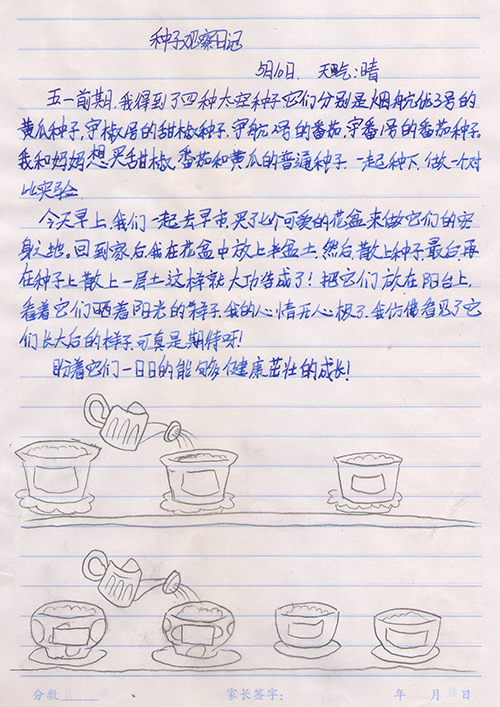 种子观察日记
5月10日. 天气:晴
五一前期,我得到了四种太空种子它们分别是烟航优3号的
黄瓜种子,宇椒1号的甜椒种子,宇航2号的番茄,宇番1号的番茄种子.
我和妈妈想买甜椒,番茄和黄瓜的普通种子.一起种下,做一个对
比实验.
今天早上,我们一起去早市,买了七个可爱的花盆来做它们的安
身之地。回到家后,我在花盆中放上半盆土,然后散上种子,最后,再
在种子上散上一层土,这样就大功造成了!把它们放在阳台上,
看着它们晒着阳光的样子,我的心情开心极了.我仿佛看见了它
们长大后的样子,可真是期待呀!
盼着它们一日日的能够健康茁壮的成长!
分数
家长签字: 年 月 日